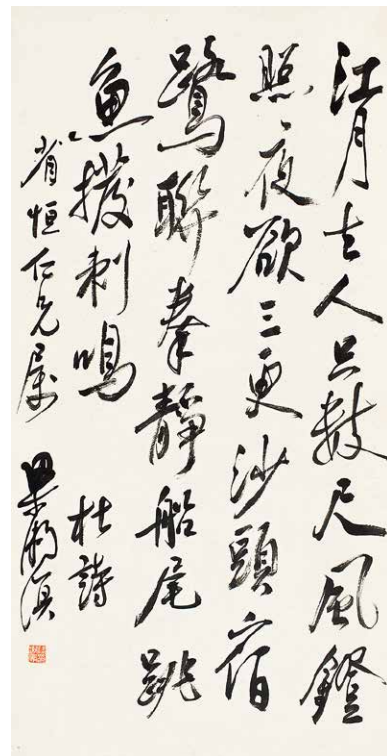 江月去人只數尺風鐙
照夜欲三更沙頭宿
鷺聯拳靜船尾跳
魚撥刺鳴 杜詩
省恒仁兄屬 梁漱溟